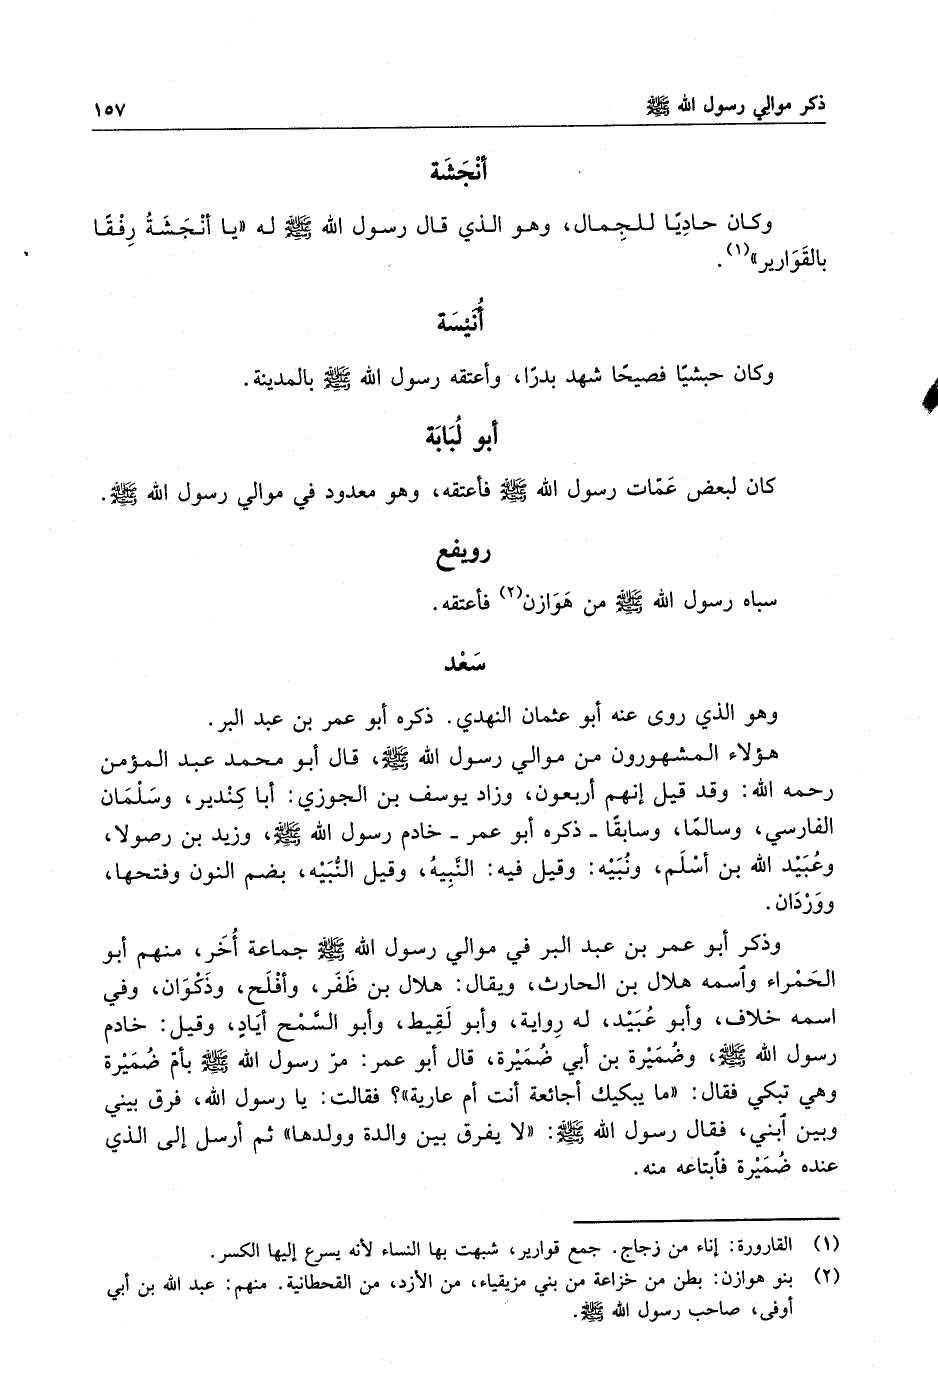 ذكر موالي رسول الله ﷺ ١٥٧
أنْجَشَة
وكـان حـادِيًا لـلـجِمـال، وهـو الـذي قـال رسـول الله ﷺ لـه «يـا أنْـجَـشَـةُ رِفْـقًـا
بالقَوَارير»(١).
أُنَيْسَة
وكان حبشيًا فصيحًا شهد بدرًا، وأعتقه رسول الله ﷺ بالمدينة.
أبو لُبَابَة
كان لبعض عَمّات رسول الله ﷺ فأعتقه، وهو معدود في موالي رسول الله ﷺ.
رويفع
سباه رسول الله ﷺ من هَوَازن(٢) فأعتقه.
سَعْد
وهو الذي روى عنه أبو عثمان النهدي. ذكره أبو عمر بن عبد البر.
هـؤلاء الـمـشـهـورون مـن مـوالـي رسـول الله ﷺ، قـال أبـو مـحـمـد عـبـد الـمـؤمـن
رحمه الله: وقد قيل إنهم أربعون، وزاد يوسف بن الجوزي: أبا كِنْدير، وسَلْمَان
الفارسي، وسالمًا، وسابقًا ـ ذكره أبو عمر ـ خادم رسول الله ﷺ، وزيد بن رصولا،
وعُبَيْد الله بن أسْلَم، ونُبَيْه: وقيل فيه: النَّبِيهُ، وقيل النُّبَيْه، بضم النون وفتحها،
ووَرْدَان.
وذكر أبو عمر بن عبد البر في موالي رسول الله ﷺ جماعة أُخَر، منهم أبو
الحَمْراء وٱسمه هلال بن الحارث، ويقال: هلال بن ظَفَر، وأفْلَح، وذَكْوَان، وفي
اسمه خلاف، وأبو عُبَيْد، له رِواية، وأبو لَقِيط، وأبو السَّمْح أيَادٍ، وقيل: خادم
رسول الله ﷺ، وضُمَيْرة بن أبي ضُمَيْرة، قال أبو عمر: مرّ رسول الله ﷺ بأمّ ضُمَيْرة
وهي تبكي فقال: «ما يبكيك أجائعة أنت أم عارية»؟ فقالت: يا رسول الله، فرق بيني
وبين ٱبني، فقال رسول الله ﷺ: «لا يفرق بين والدة وولدها» ثم أرسل إلى الذي
عنده ضُمَيْرة فٱبتاعه منه.
(١) القارورة: إناء من زجاج. جمع قوارير، شبهت بها النساء لأنه يسرع إليها الكسر.
(٢) بنو هوازن: بطن من خزاعة من بني مزيقياء، من الأزد، من القحطانية. منهم: عبد الله بن أبي
أوفى، صاحب رسول الله ﷺ.